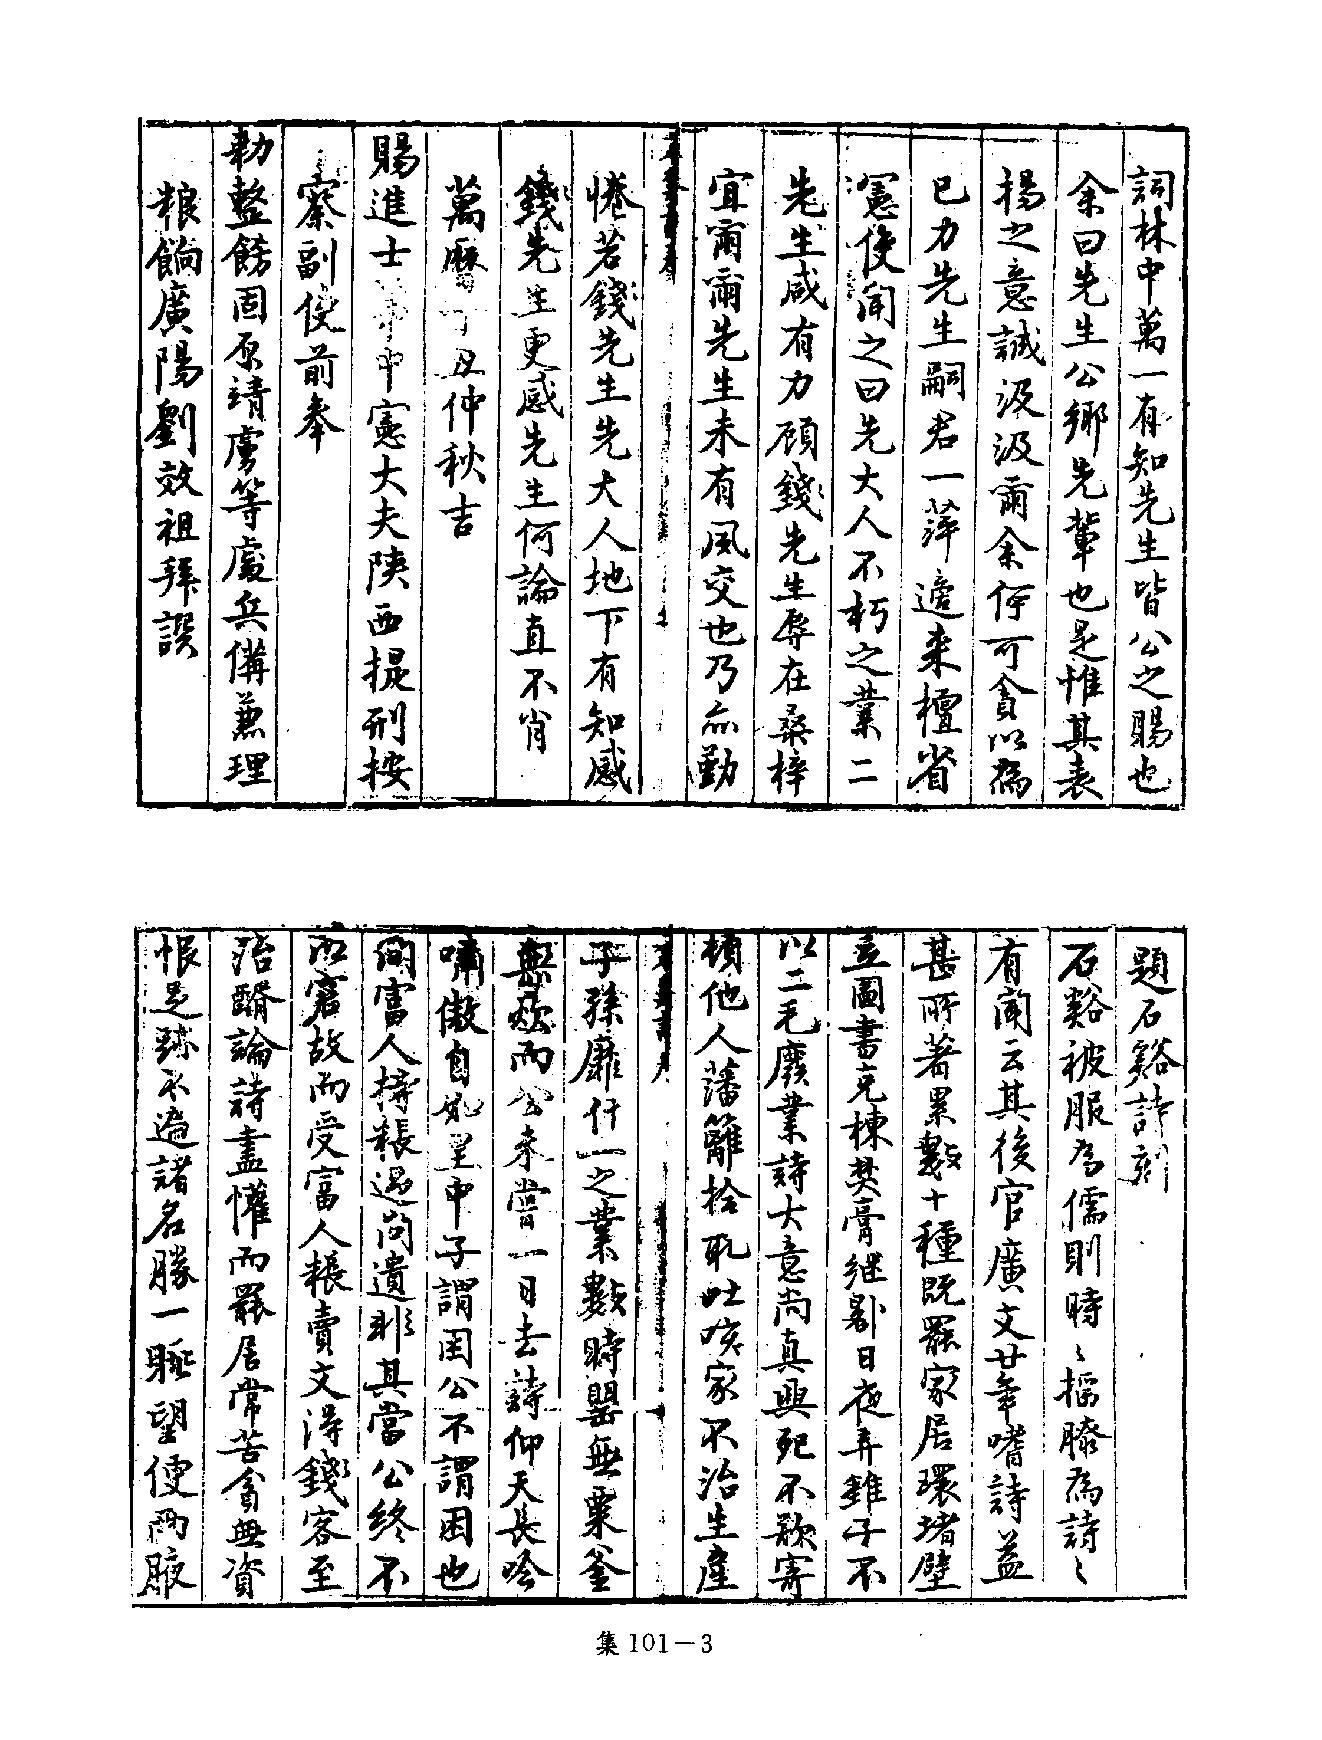 詞林中萬一有知先生皆公之賜也
余曰先生公鄉先輩也是惟其表
揚之意誠汲汲爾余何可貪以為
已力先生嗣君一萍適来檀省
憲使聞之曰先大人不朽之業二
先生咸有力顧錢先生辱在桑梓
宜爾爾先生未有風交也乃亦勤
惓若錢先生先大人地下有知感
錢先生更感先生何論直不肖
萬曆丁丑仲秋吉
賜進士 中憲大夫陝西提刑按
察副使前奉
勅整飭固原靖虜等處兵備兼理
粮餉廣陽劉效祖拜譔
題石谿詩刻
石谿被服為儒則時〻搖膝為詩〻
有聞云其後官廣文廿年嗜詩益
甚所著累數十種既罷家居環堵壁
立圖書充棟焚膏继晷日夜弄雖子不
以二毛廢業詩大意尚真興記不欲寄
頓他人藩籬拾耴吐咳家不治生產
子孫靡什一之業數時罌無粟釜
無炊而公未嘗一日去詩仰天長吟
嘯傲自如里中子謂困公不謂困也
間富人持粻過問遺非其當公終不
以窘故而受富人粻賣文得錢客至
治醑論詩盡懽而罷居常苦貧無資
恨足跡不遍諸名勝一眺望便兩腋
集101－3